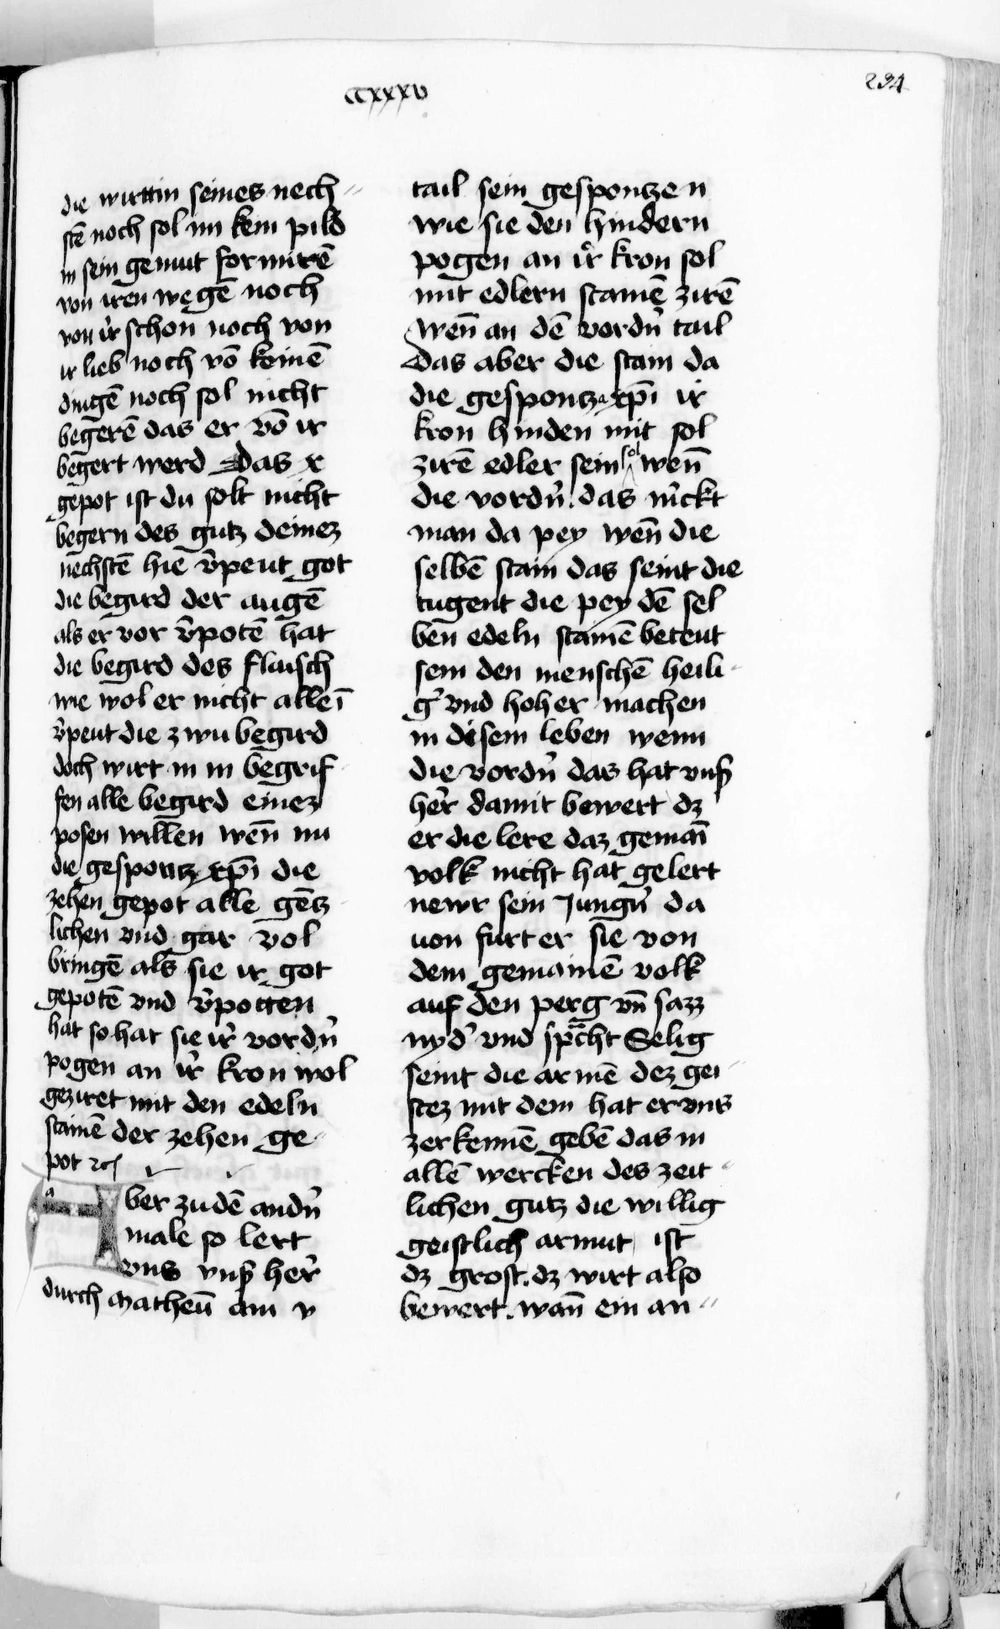 ccxxxv
294
die wirttin seines nech-
stē noch sol im kein pild
in sein gemut formirē
von iren wegē noch
von ir̉ schon noch von
ir lieb noch vō keinē
dingē noch sol nicht
begerē das er vō ir
begert werd Das x
gepot ist du solt nicht
begern des gutz deinez
nechstē hie v̉peut got
die begird der augē
als er vor v̉potē hat
die begird des flaisch
wie wol er nicht alleī
v̉peut die zwu begird
doch wirt in in begrif
fen alle begird einez
posen willen wen̄ nu
die gespontz xp̄i die
zehen gepot alle gētz
lichen vnd gar vol
bringē als sie ir got
gepotē vnd v̉potten
hat so hat sie ir̉ vordn̉
pogen an ir̉ kron wol
geziret mit den edeln
stainē der zehen ge-
pot ⁊c
Aber zu dē andn̉
male so lert
vns vnß her̉
durch Matheū am v
tail sein gespontzen
wie sie den hindern
pogen an ir̉ kron sol
mit edlern stainē zirē
wen̄ an dē vordn̉ tail
Das aber die stain da
die gespontz xp̄i ir
kron hinden mit sol
zirē edler sein sol wen̄
die vordn̉. das m̉ckt
man da pey wen̄ die
selbē stain das seint die
tugent die pey dē sel
ben edeln stainē beteut
sein den menschē heili-
g̉ vnd hoher machen
in disem leben wenn
die vordn̉ das hat vnß
her̉ damit bewert dz
er die lere daz gemain̄
volk nicht hat gelert
newr sein Jungn̉ da
uon furt er sie von
dem gemainē volk
auf den perg vn̄ sazz
nyd̉ vnd sp̄cht Selig
seint die armē dez gei-
stez mit dem hat er vns
zerkennē gebē das in
allē wercken des zeit-
lichen gutz die willig
geistlich armut ist
dz grost. dz wirt also
bewert. wan̄ ein an-